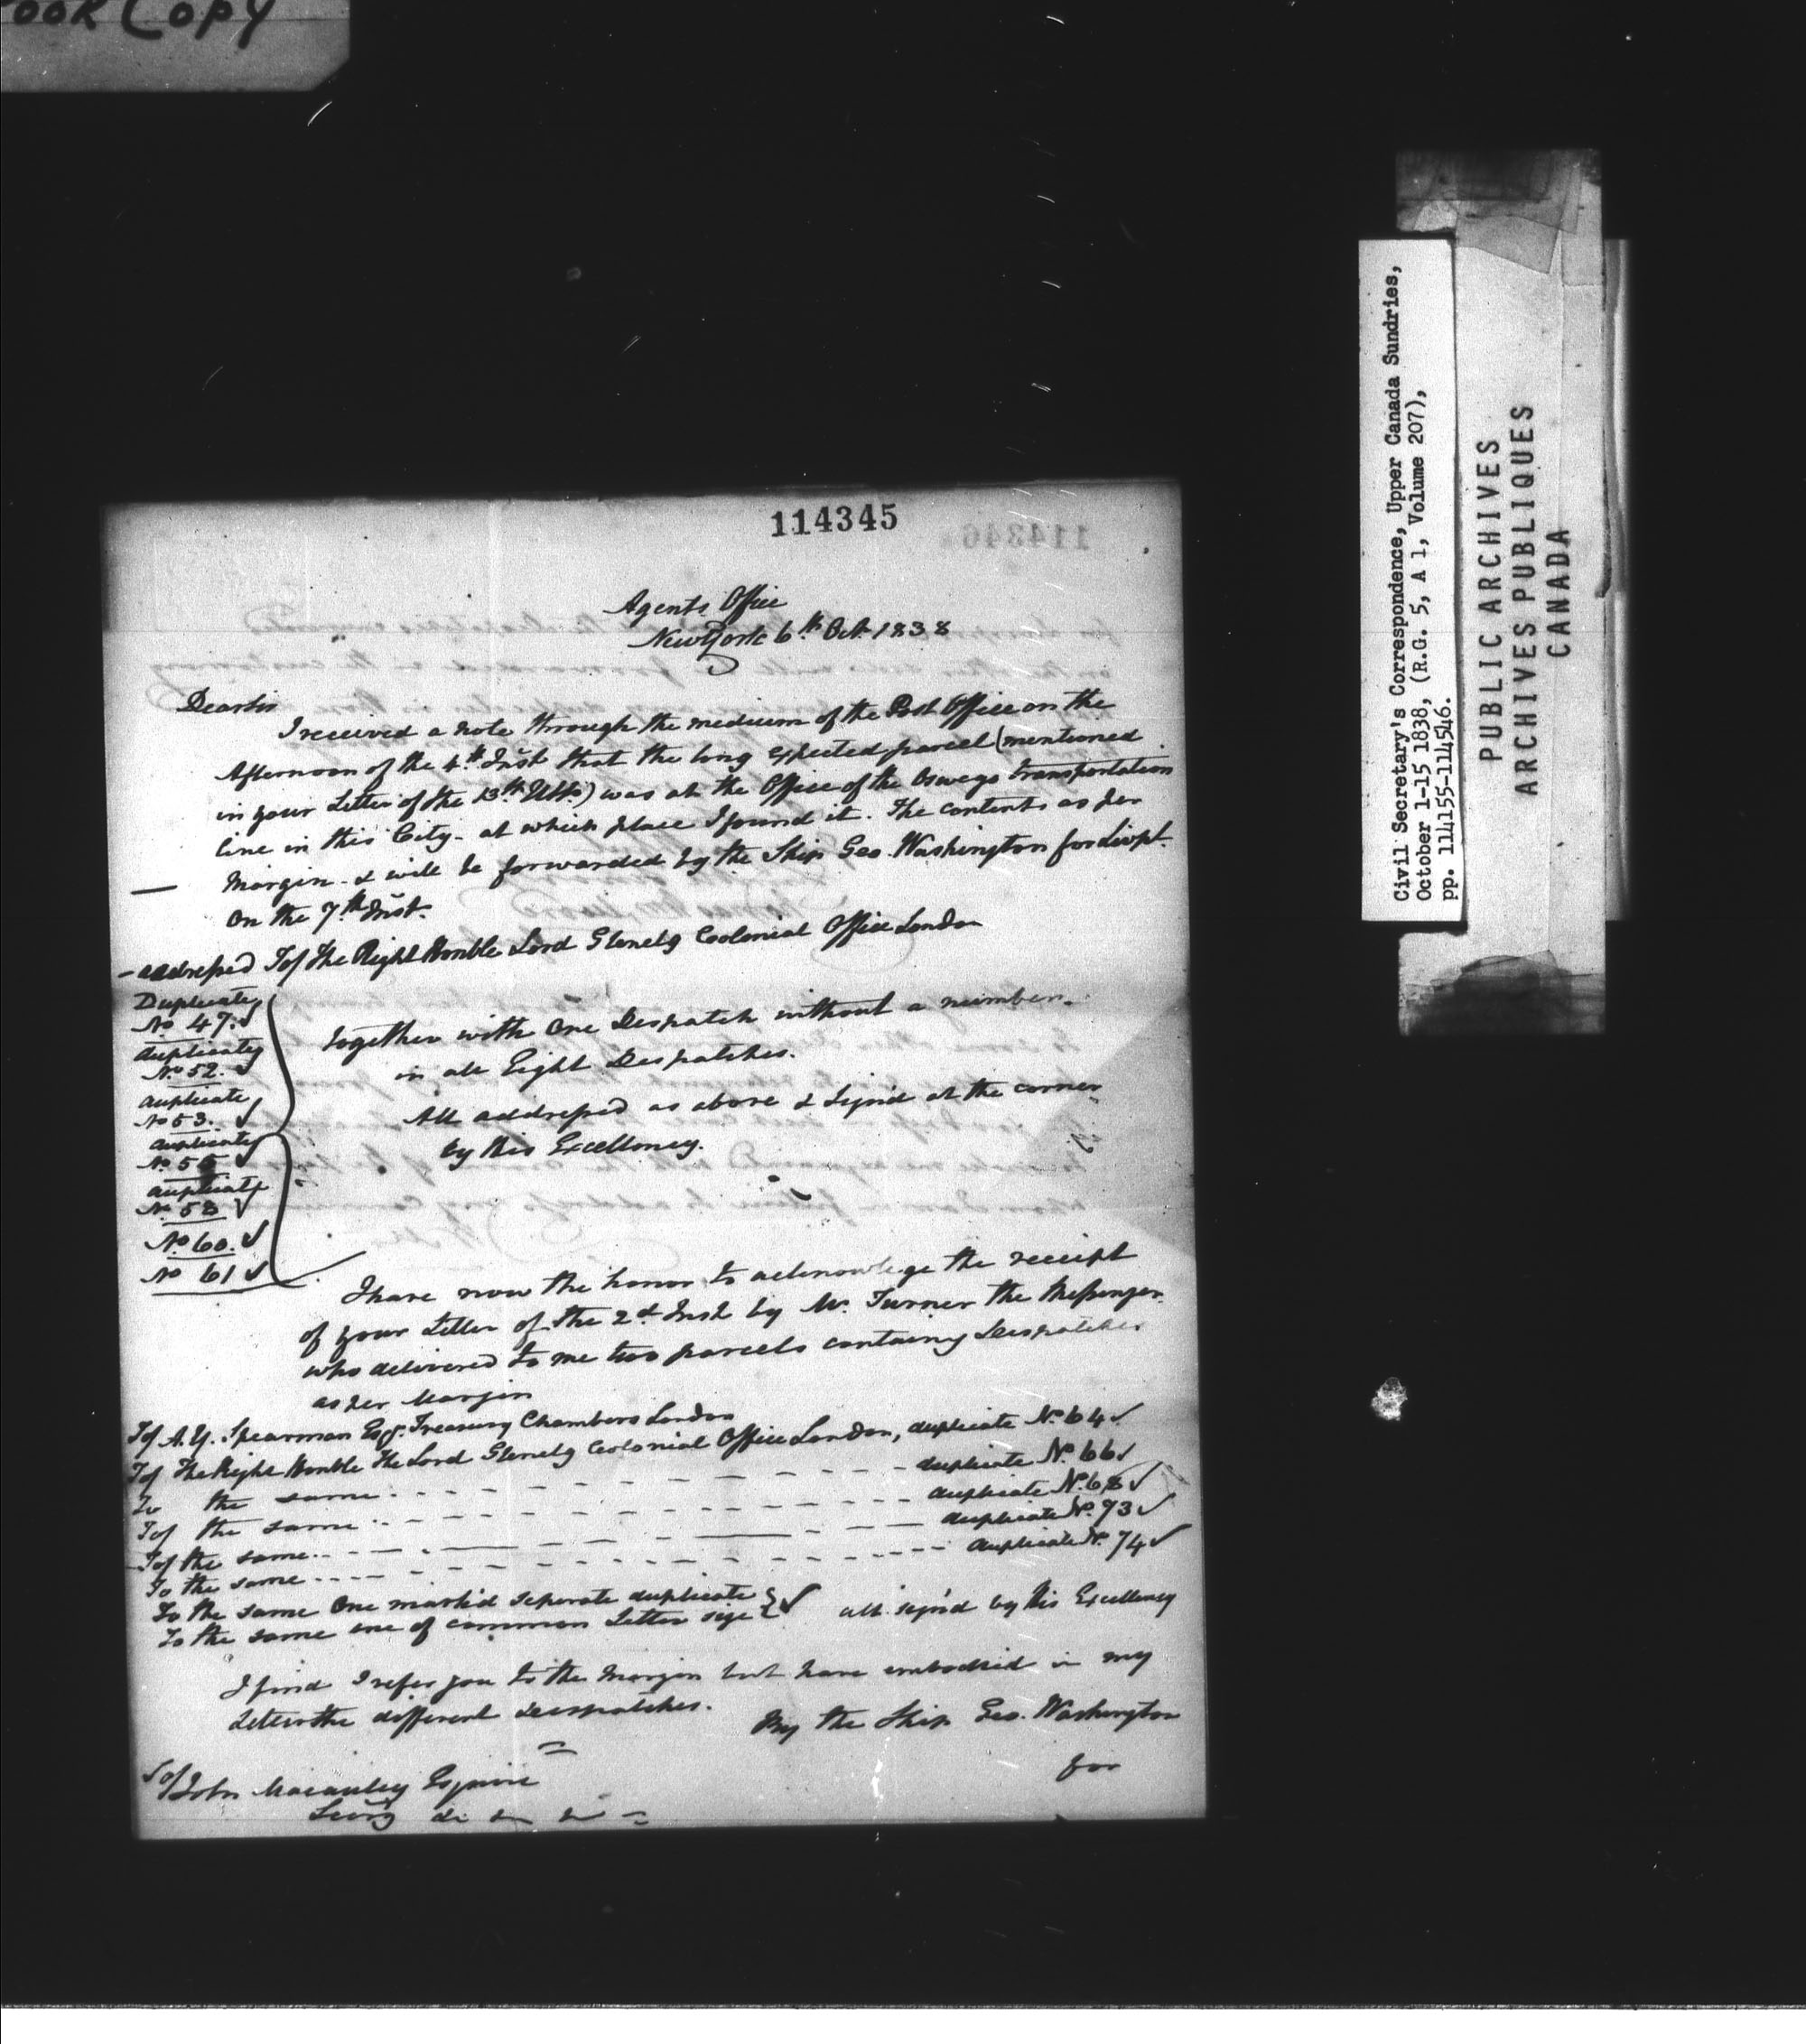 ook Copy
114345
Agents Office
New York 6th Oct 1838
Dear Sir
I received a note through the medium of the Post Office on the
Afternoon of the 4th Inst that the long expected parcel (mentioned
in your Letter of the 13th Ulto) was at the Office of the Oswego transportation
line in this City - at which place I found it. The contents as per
Margin - & will be forwarded by the Ship Geo. Washington for Livpl.
on the 7th Inst.
- addressed To/ The Right Honble Lord Glenelg Colonial Office London
Duplicate
No 47. ✓
duplicate
No 52. ✓
duplicate
No 53. ✓
duplicate
No 55 ✓
duplicate
No 58 ✓
No 60. ✓
No 61 ✓
Together with One Despatch without a number.
in all Eight Despatches.
All addressed as above & Sign'd at the corner
by His Excellency.
I have now the honor to acknowlege the receipt
of your Letter of the 2d Inst by Mr. Turner the Messenger
who delivered to me two parcels containg Despatches
as per Margin
To/ A. Y. Spearman Esqr. Treasury Chambers London
To/ The Right Honble The Lord Glenelg Colonial Office London, duplicate No. 64 ✓
To the same - - - - duplicate No. 66 ✓
To/ the same - - - - duplicate No. 68 ✓
To/ the same - - - - duplicate No. 73 ✓
To the same - - - - duplicate No. 74 ✓
To the same One mark'd seperate duplicate } ✓
To the same one of common Letter size all sign'd by His Excellency
I find I refer you to the Margin but have embodied in my
Letter the different Despatches.
By the Ship Geo. Washington
for
To/ John Macaulay Esquire
Secry &c &c &c
Civil Secretary's Correspondence, Upper Canada Sundries,
October 1-15 1838, (R.G. 5, A 1, Volume 207),
pp. 114155-114546.
PUBLIC ARCHIVES
ARCHIVES PUBLIQUES
CANADA